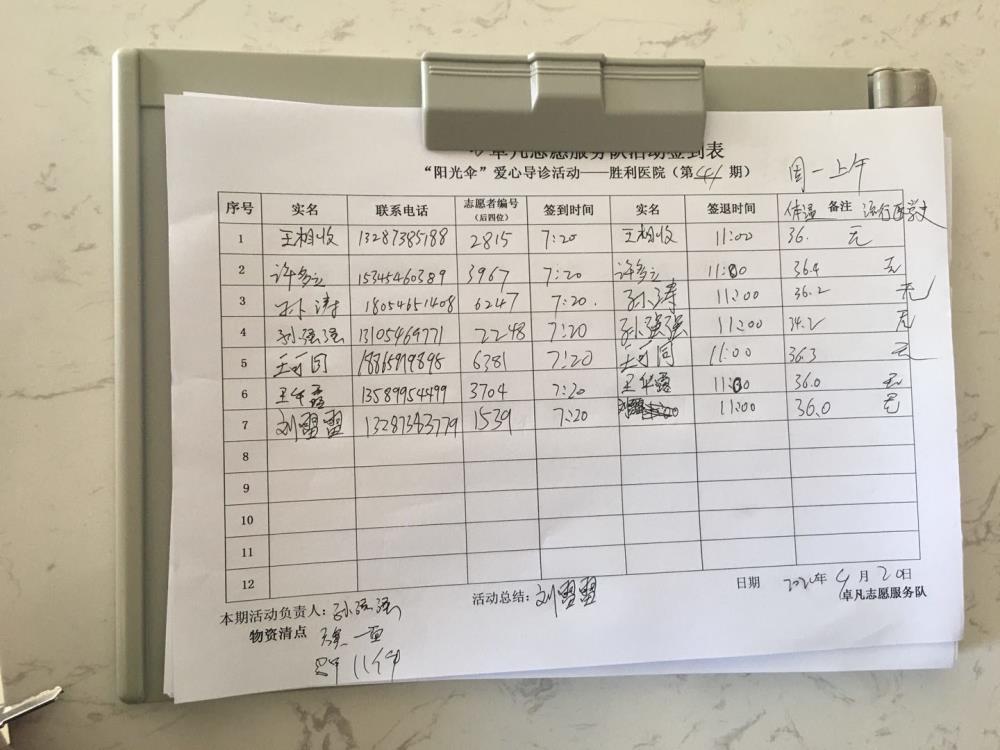 卓凡志愿服务队活动签到表
“阳光伞”爱心导诊活动——胜利医院（第44期） 周一上午
序号 实名 联系电话 志愿者编号（后四位） 签到时间 实名 签退时间 体温 备注 流行病学史
1 王相收 13287385188 2815 7:20 王相收 11:00 36. 无
2 许多立 15345460389 3967 7:20 许多立 11:00 36.4 无
3 孙涛 18054651408 6247 7:20. 孙涛 11:00 36.2 无
4 孙强强 13105469771 2248 7:20 孙强强 11:00 34.2 无
5 王可同 6381 7:20 王可同 11:00 36.3 无
6 王华露 13589954499 3704 7:20 王华露 11:00 36.0 无
7 刘翠翠 1539 7:20 11:00 36.0 无
8
9
10
11
12
本期活动负责人：孙强强 活动总结：刘翠翠 日期 2020年4月20日
物资清点 一面 卓凡志愿服务队
11件